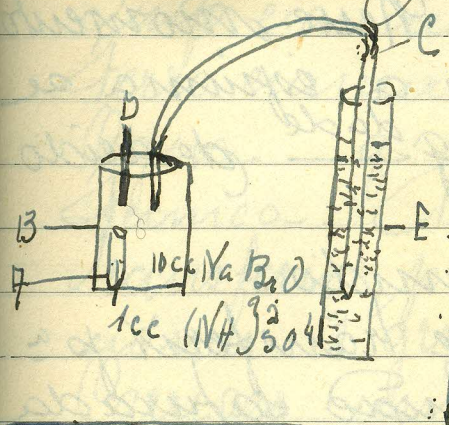 C
D
B
E
A
10cc NaBrO
1cc (NH4)2SO4